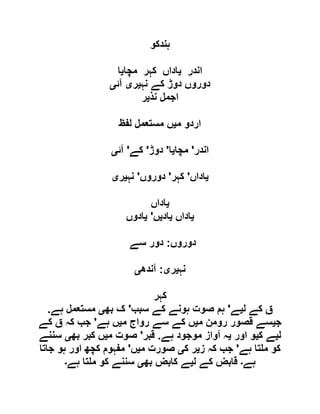 ہندکو
اندر یاداں کہر مچایا
دوروں دوڑ کے نہیری آئی
اجمل نذیر
اردو میں مستعمل لفظ
اندر' مچایا' دوڑ' کے' آئی
یاداں' کہر' دوروں' نہیری
یاداں
یاداں یادیں' یادوں
دوروں: دور سے
نہیری: آندھی
کہر
ق کے لیے' ہم صوت ہونے کے سبب' ک بھی مستعمل ہے۔
جیسے قصور رومن میں کے سے رواج میں ہے' جب کہ ق کے
لیے کیو اور یہ آواز موجود ہے۔ قہر' صوت میں کہر بھی سننے
کو ملتا ہے' جب کہ زیر کی صورت میں' مفہوم کچھ اور ہو جاتا
ہے۔ قابض کے لیے کابض بھی سننے کو ملتا ہے۔